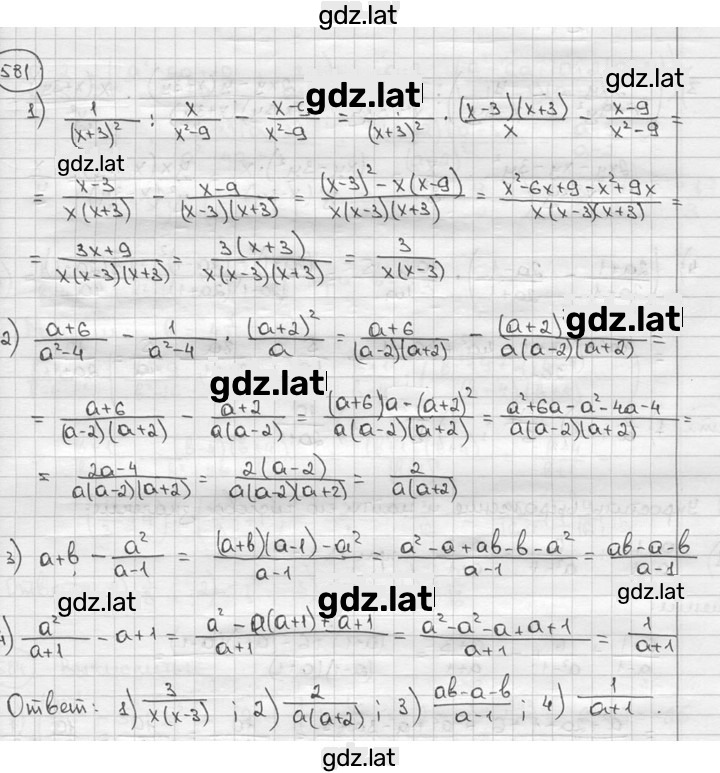 gdz.lat
581
1) 1/(x+3)² : x/(x²-9) - (x-9)/(x²-9) = /(x+3)² · (x-3)(x+3)/x - (x-9)/(x²-9) =
gdz.lat gdz.lat gdz.lat
= (x-3)/(x(x+3)) - (x-9)/((x-3)(x+3)) = ((x-3)²-x(x-9))/(x(x-3)(x+3)) = (x²-6x+9-x²+9x)/(x(x-3)(x+3)) =
= (3x+9)/(x(x-3)(x+3)) = 3(x+3)/(x(x-3)(x+3)) = 3/(x(x-3)).
2) (a+6)/(a²-4) - 1/(a²-4) · (a+2)²/a = (a+6)/((a-2)(a+2)) - (a+2)/(a(a-2)(a+2)) =
gdz.lat
gdz.lat
= (a+6)/((a-2)(a+2)) - (a+2)/(a(a-2)) = ((a+6)a-(a+2)²)/(a(a-2)(a+2)) = (a²+6a-a²-4a-4)/(a(a-2)(a+2)) =
= (2a-4)/(a(a-2)(a+2)) = 2(a-2)/(a(a-2)(a+2)) = 2/(a(a+2))
3) a+b - a²/(a-1) = ((a+b)(a-1)-a²)/(a-1) = (a²-a+ab-b-a²)/(a-1) = (ab-a-b)/(a-1)
gdz.lat gdz.lat gdz.lat
4) a²/(a+1) - a+1 = (a²-a(a+1)+a+1)/(a+1) = (a²-a²-a+a+1)/(a+1) = 1/(a+1)
Ответ: 1) 3/(x(x-3)) ; 2) 2/(a(a+2)) ; 3) (ab-a-b)/(a-1) ; 4) 1/(a+1).
gdz.lat